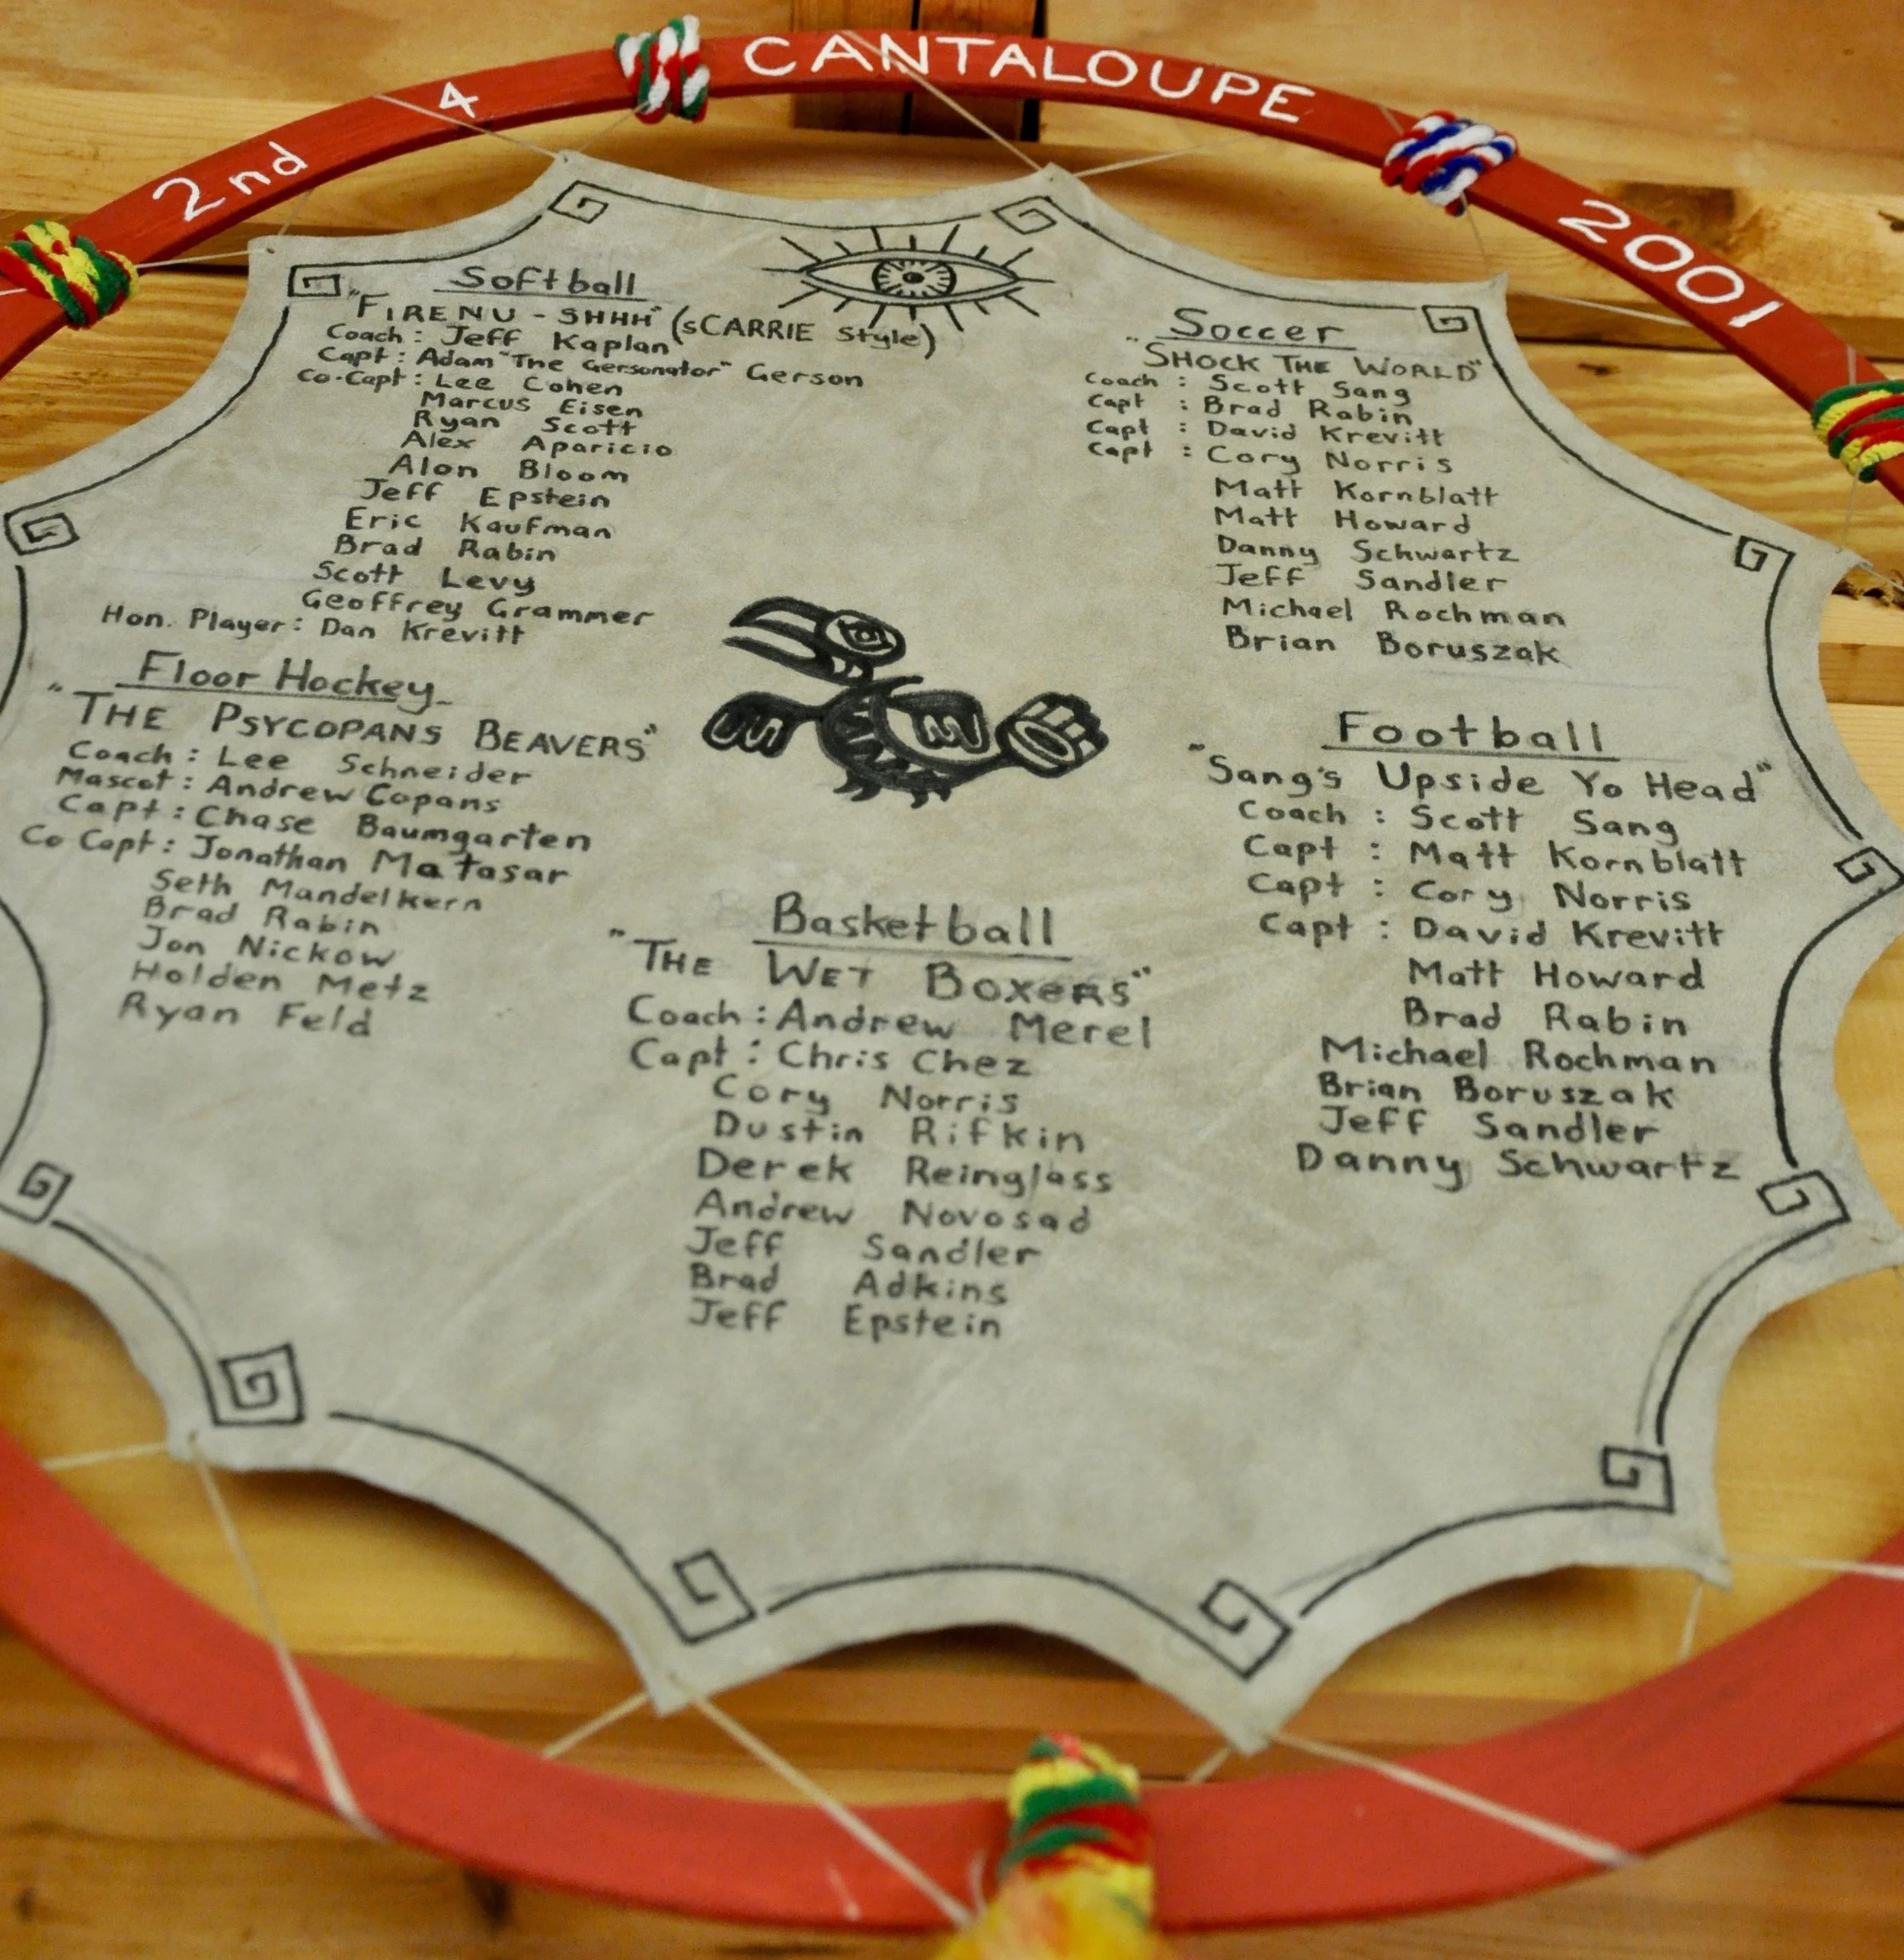 2nd 4 CANTALOUPE 2001
Softball
"FIRENU - SHHH" (sCARRIE Style)
Coach: Jeff Kaplan
Capt: Adam "The Gersonator" Gerson
Co-Capt: Lee Cohen
Marcus Eisen
Ryan Scott
Alex Aparicio
Alon Bloom
Jeff Epstein
Eric Kaufman
Brad Rabin
Scott Levy
Geoffrey Grammer
Hon. Player: Dan Krevitt
Floor Hockey
"THE PSYCOPANS BEAVERS"
Coach: Lee Schneider
Mascot: Andrew Copans
Capt: Chase Baumgarten
Co Capt: Jonathan Matasar
Seth Mandelkern
Brad Rabin
Jon Nickow
Holden Metz
Ryan Feld
Basketball
"THE WET BOXERS"
Coach: Andrew Merel
Capt: Chris Chez
Cory Norris
Dustin Rifkin
Derek Reinglass
Andrew Novosad
Jeff Sandler
Brad Adkins
Jeff Epstein
Soccer
"SHOCK THE WORLD"
Coach : Scott Sang
Capt : Brad Rabin
Capt : David Krevitt
Capt : Cory Norris
Matt Kornblatt
Matt Howard
Danny Schwartz
Jeff Sandler
Michael Rochman
Brian Boruszak
Football
"Sang's Upside Yo Head"
Coach : Scott Sang
Capt : Matt Kornblatt
Capt : Cory Norris
Capt : David Krevitt
Matt Howard
Brad Rabin
Michael Rochman
Brian Boruszak
Jeff Sandler
Danny Schwartz